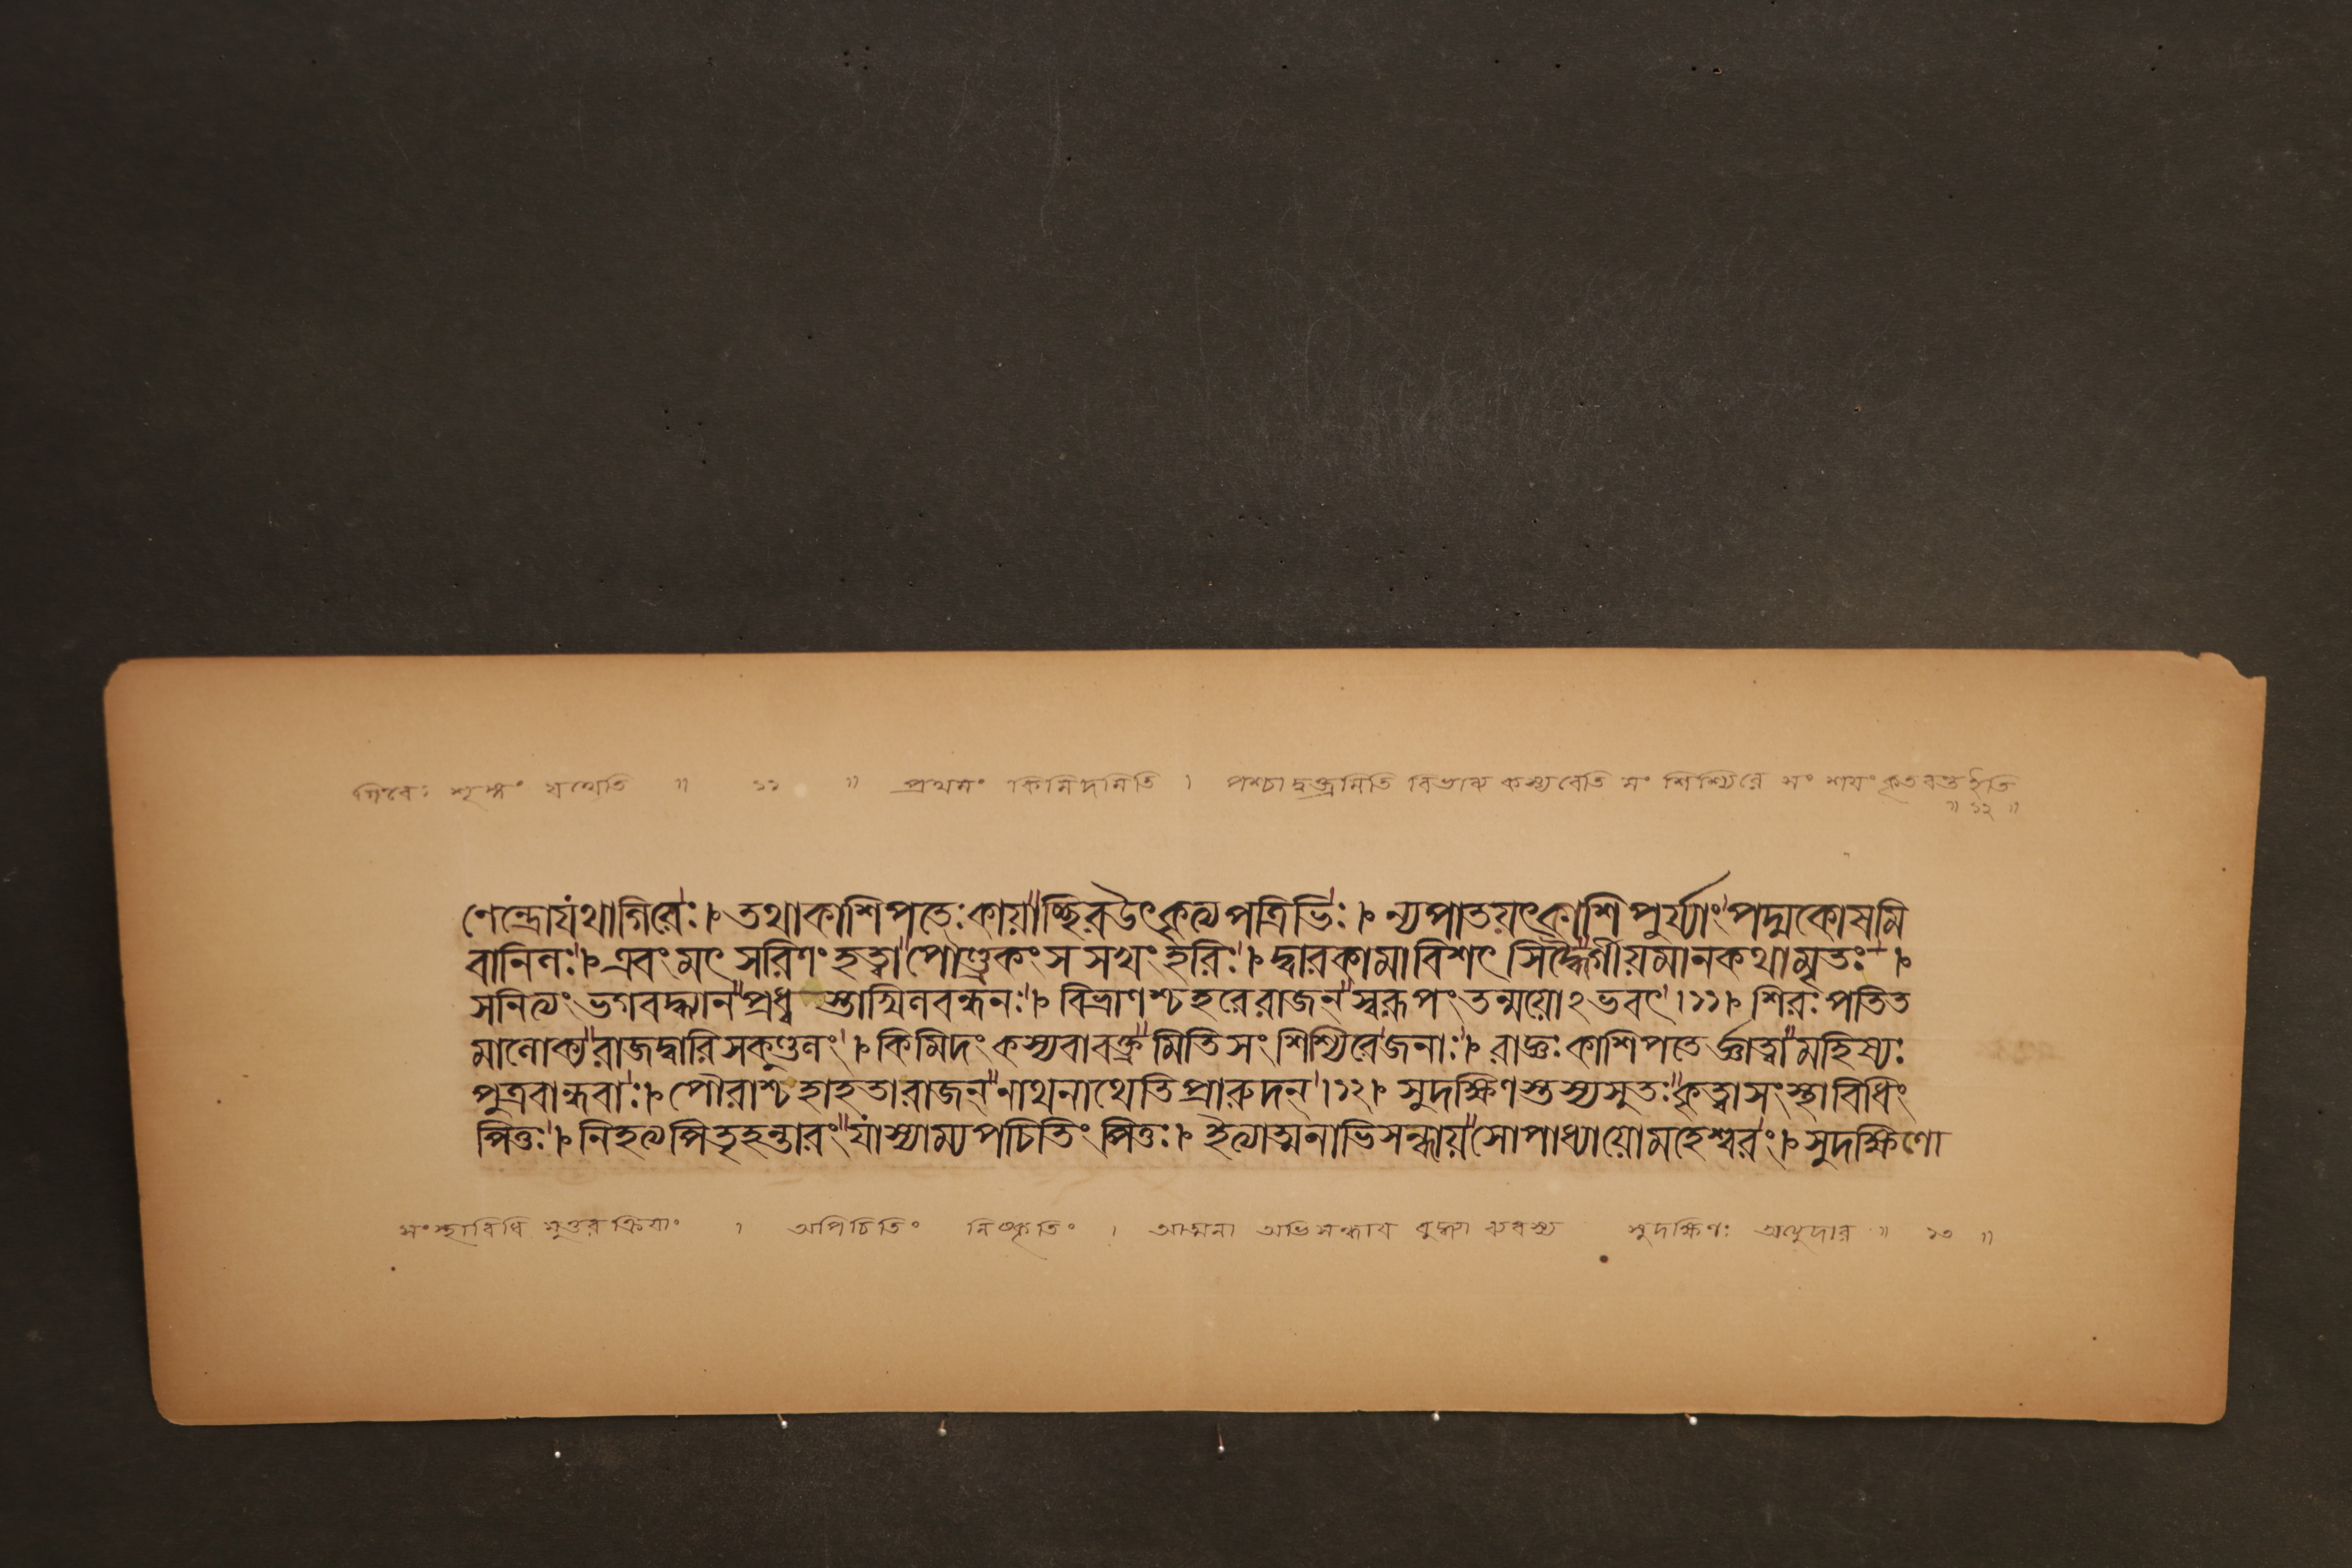 গিরেঃ শৃঙ্গং যথেতি ॥ ১১ ॥ প্রথমং কিমিদমিতি । পশ্চাদ্বক্ত্রমিতি বিভাব্য কস্য বেতি সং শিশ্যিরে সং শয়ং কৃতবন্ত ইতি
॥ ১২ ॥
ণেন্দ্রো যথাগিরেঃ। তথাকাশিপতেঃকায়াচ্ছিরউৎকৃত্যপত্রিভিঃ। ন্যপাতয়ৎকাশিপুর্য্যাংপদ্মকোষমি
বানিলঃ। এবংমৎসরিণংহত্বাপৌণ্ড্রকংসসখংহরিঃ। দ্বারকামাবিশৎসিদ্ধৈর্গীয়মানকথামৃতঃ।
সনিত্যংভগবদ্ধ্যানপ্রধ্বস্তাখিলবন্ধনঃ। বিভ্রাণশ্চহরেরাজন্স্বরূপংতন্ময়োঽভবৎ।১১। শিরঃপতিত
মালোক্যরাজদ্বারিসকুণ্ডলং। কিমিদংকস্যবাবক্ত্রমিতিসংশিশ্যিরেজনাঃ। রাজ্ঞঃকাশিপতের্জ্ঞাত্বামহিষ্যঃ
পুত্রবান্ধবাঃ। পৌরাশ্চহাহতারাজন্নাথনাথেতিপ্রারুদন্।১২। সুদক্ষিণস্তস্যসুতঃকৃত্বাসংস্থাবিধিং
পিতুঃ। নিহত্যপিতৃহন্তারংযাস্যাম্যপচিতিংপিতুঃ। ইত্যাত্মনাভিসন্ধায়সোপাধ্যায়োমহেশ্বরং। সুদক্ষিণো
সংস্থাবিধি মুত্তরক্রিয়াং । অপিচিতিং নিষ্কৃতিং । আত্মনা অভিসন্ধায় বুদ্ধ্যা সুদক্ষিণঃ অত্যুদার ॥ ১৩ ॥